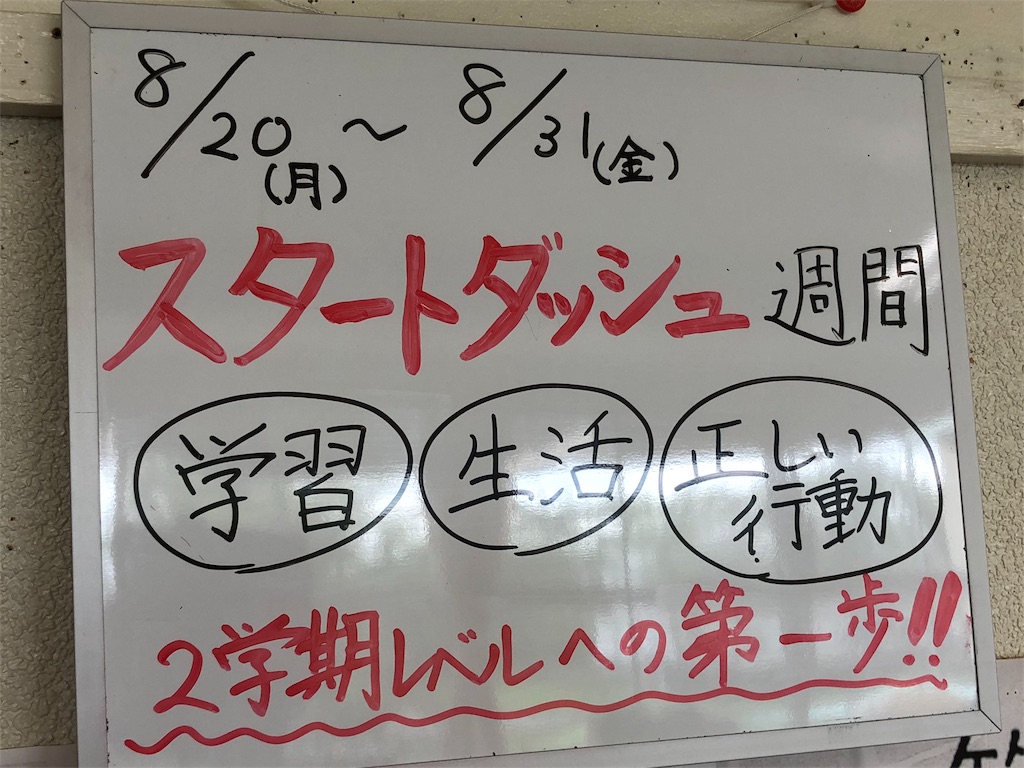 8/20(月)～8/31(金)
スタートダッシュ週間
学習 生活 正しい行動
2学期レベルへの第一歩!!